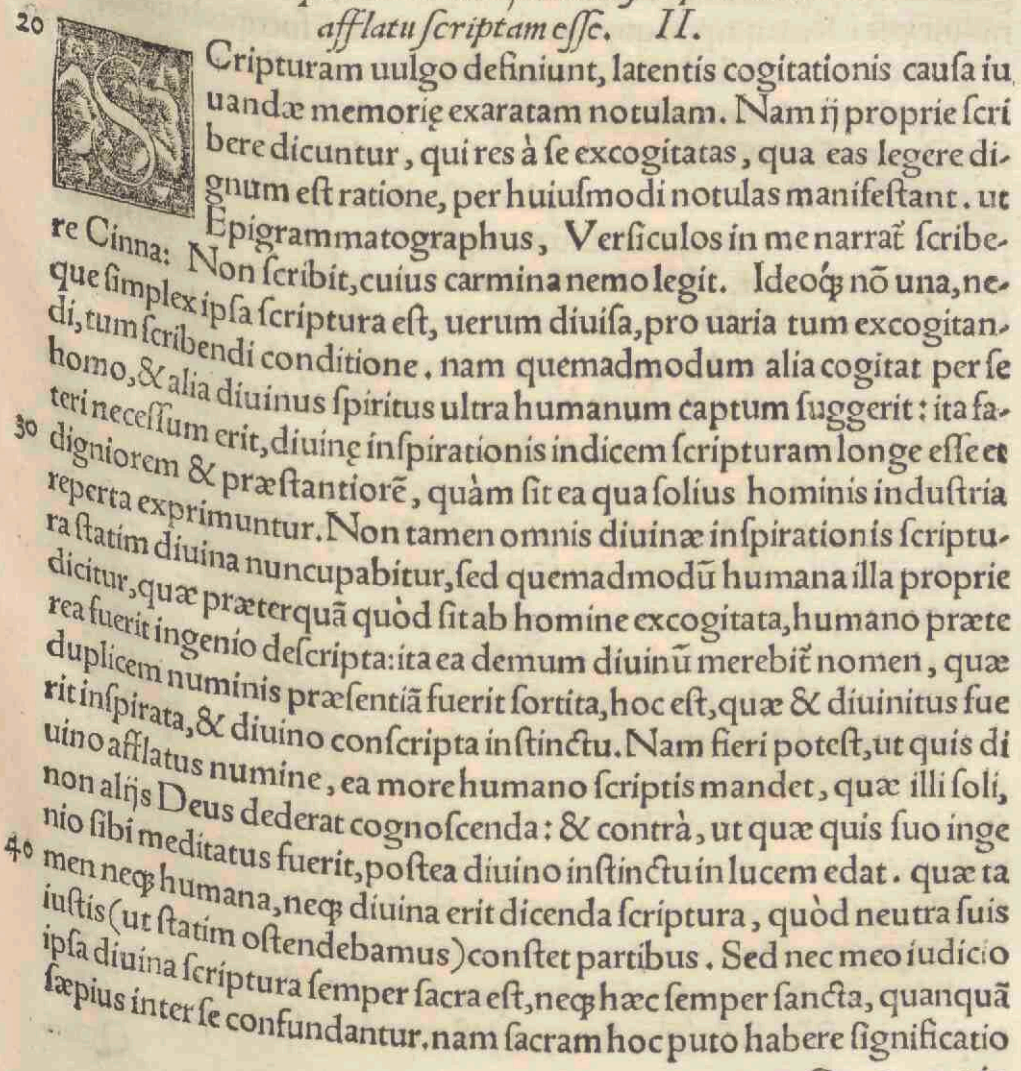 afflatu ſcriptam eſſe. II.
20
SCripturam uulgo definiunt, latentis cogitationis cauſa iu
uandæ memorię exaratam notulam. Nam ij proprie ſcri
bere dicuntur, qui res à ſe excogitatas, qua eas legere di-
gnum eſt ratione, per huiuſmodi notulas manifeſtant. ut
Epigrammatographus, Verſiculos in me narrat᷑ ſcribe-
re Cinna: Non ſcribit, cuius carmina nemo legit. Ideoq́ꝫ nō una, ne-
que ſimplex ipſa ſcriptura eſt, uerum diuiſa, pro uaria tum excogitan-
di, tum ſcribendi conditione. nam quemadmodum alia cogitat per ſe
homo, & alia diuinus ſpiritus ultra humanum captum ſuggerit: ita fa-
teri neceſſum erit, diuinę inſpirationis indicem ſcripturam longe eſſe et
30 digniorem & præſtantiorē, quàm ſit ea qua ſolius hominis induſtria
reperta exprimuntur. Non tamen omnis diuinæ inſpirationis ſcriptu-
ra ſtatim diuina nuncupabitur, ſed quemadmodū humana illa proprie
dicitur, quæ præterquā quòd ſit ab homine excogitata, humano præte
rea fuerit ingenio deſcripta: ita ea demum diuinū merebit᷑ nomen, quæ
duplicem numinis præſentiā fuerit ſortita, hoc eſt, quæ & diuinitus fue
rit inſpirata, & diuino conſcripta inſtinctu. Nam fieri poteſt, ut quis di
uino afflatus numine, ea more humano ſcriptis mandet, quæ illi ſoli,
non alijs Deus dederat cognoſcenda: & contrà, ut quæ quis ſuo inge
nio ſibi meditatus fuerit, poſtea diuino inſtinctu in lucem edat. quæ ta
40 men neqꝫ humana, neqꝫ diuina erit dicenda ſcriptura, quòd neutra ſuis
iuſtis (ut ſtatim oſtendebamus) conſtet partibus. Sed nec meo iudicio
ipſa diuina ſcriptura ſemper ſacra eſt, neqꝫ hæc ſemper ſancta, quanquā
ſæpius inter ſe confundantur. nam ſacram hoc puto habere ſignificatio